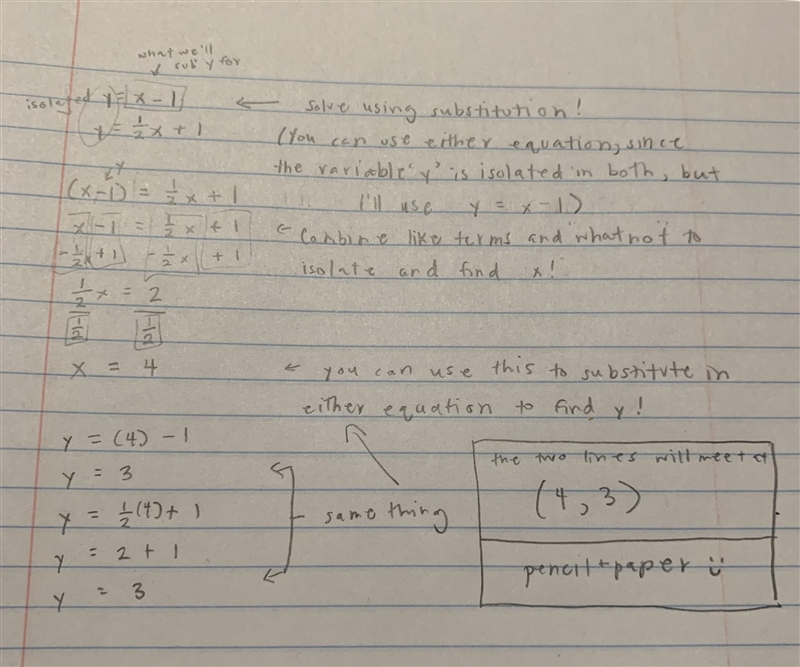 what we'll
sub y for
isolated y = x - 1 ← solve using substitution!
y = 1/2x + 1 (You can use either equation, since
the variable 'y' is isolated in both, but
y
(x-1) = 1/2x + 1 I'll use y = x-1)
x - 1 = 1/2x + 1 ← Combine like terms and whatnot to
-1/2x + 1 -1/2x + 1 isolate and find x!
1/2x = 2
1/2 1/2
x = 4 ← you can use this to substitute in
either equation to find y!
y = (4) - 1
y = 3
y = 1/2(4) + 1 same thing
y = 2 + 1
y = 3
the two lines will meet at
(4, 3)
pencil + paper :)